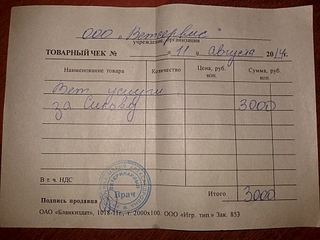 ООО "Ветсервис"
учреждение, организация
ТОВАРНЫЙ ЧЕК № " 11 " августа 2014г.
Наименование товара Количество Цена, руб. коп. Сумма, руб. коп.
Вет. услуги
за 3000
В т. ч. НДС
Итого 3000
Подпись продавца
Врач
ОАО «Бланкиздат», 1018-11г., т. 2000х100. ООО «Игр. тип.» Зак. 853